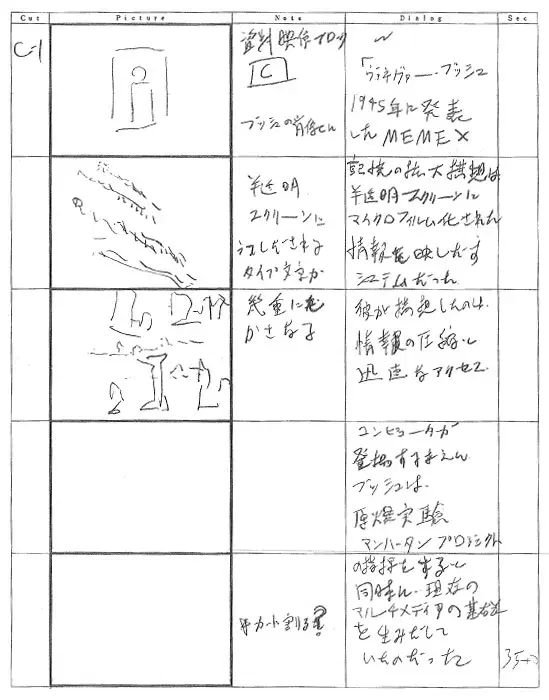 Cut Picture Note Dialog Sec
C-1
資料映像ブロック
C
ブッシュの肖像
「ヴァネヴァー・ブッシュ
1945年に発表
したMEMEX
半透明
スクリーンに
うつしだされる
タイプ文字が
記憶の拡大構想は
半透明スクリーンに
マイクロフィルム化された
情報を映しだす
システムだった
幾重にも
かさなる
彼が構想したのは
情報の圧縮と
迅速なアクセス
コンピュータが
登場するまえに
ブッシュは
原爆実験
マンハータンプロジェクト
の指揮をすると
同時に、現在の
マルチメディアの基礎
を生みだして
いたのだった
カット割る?
35+0